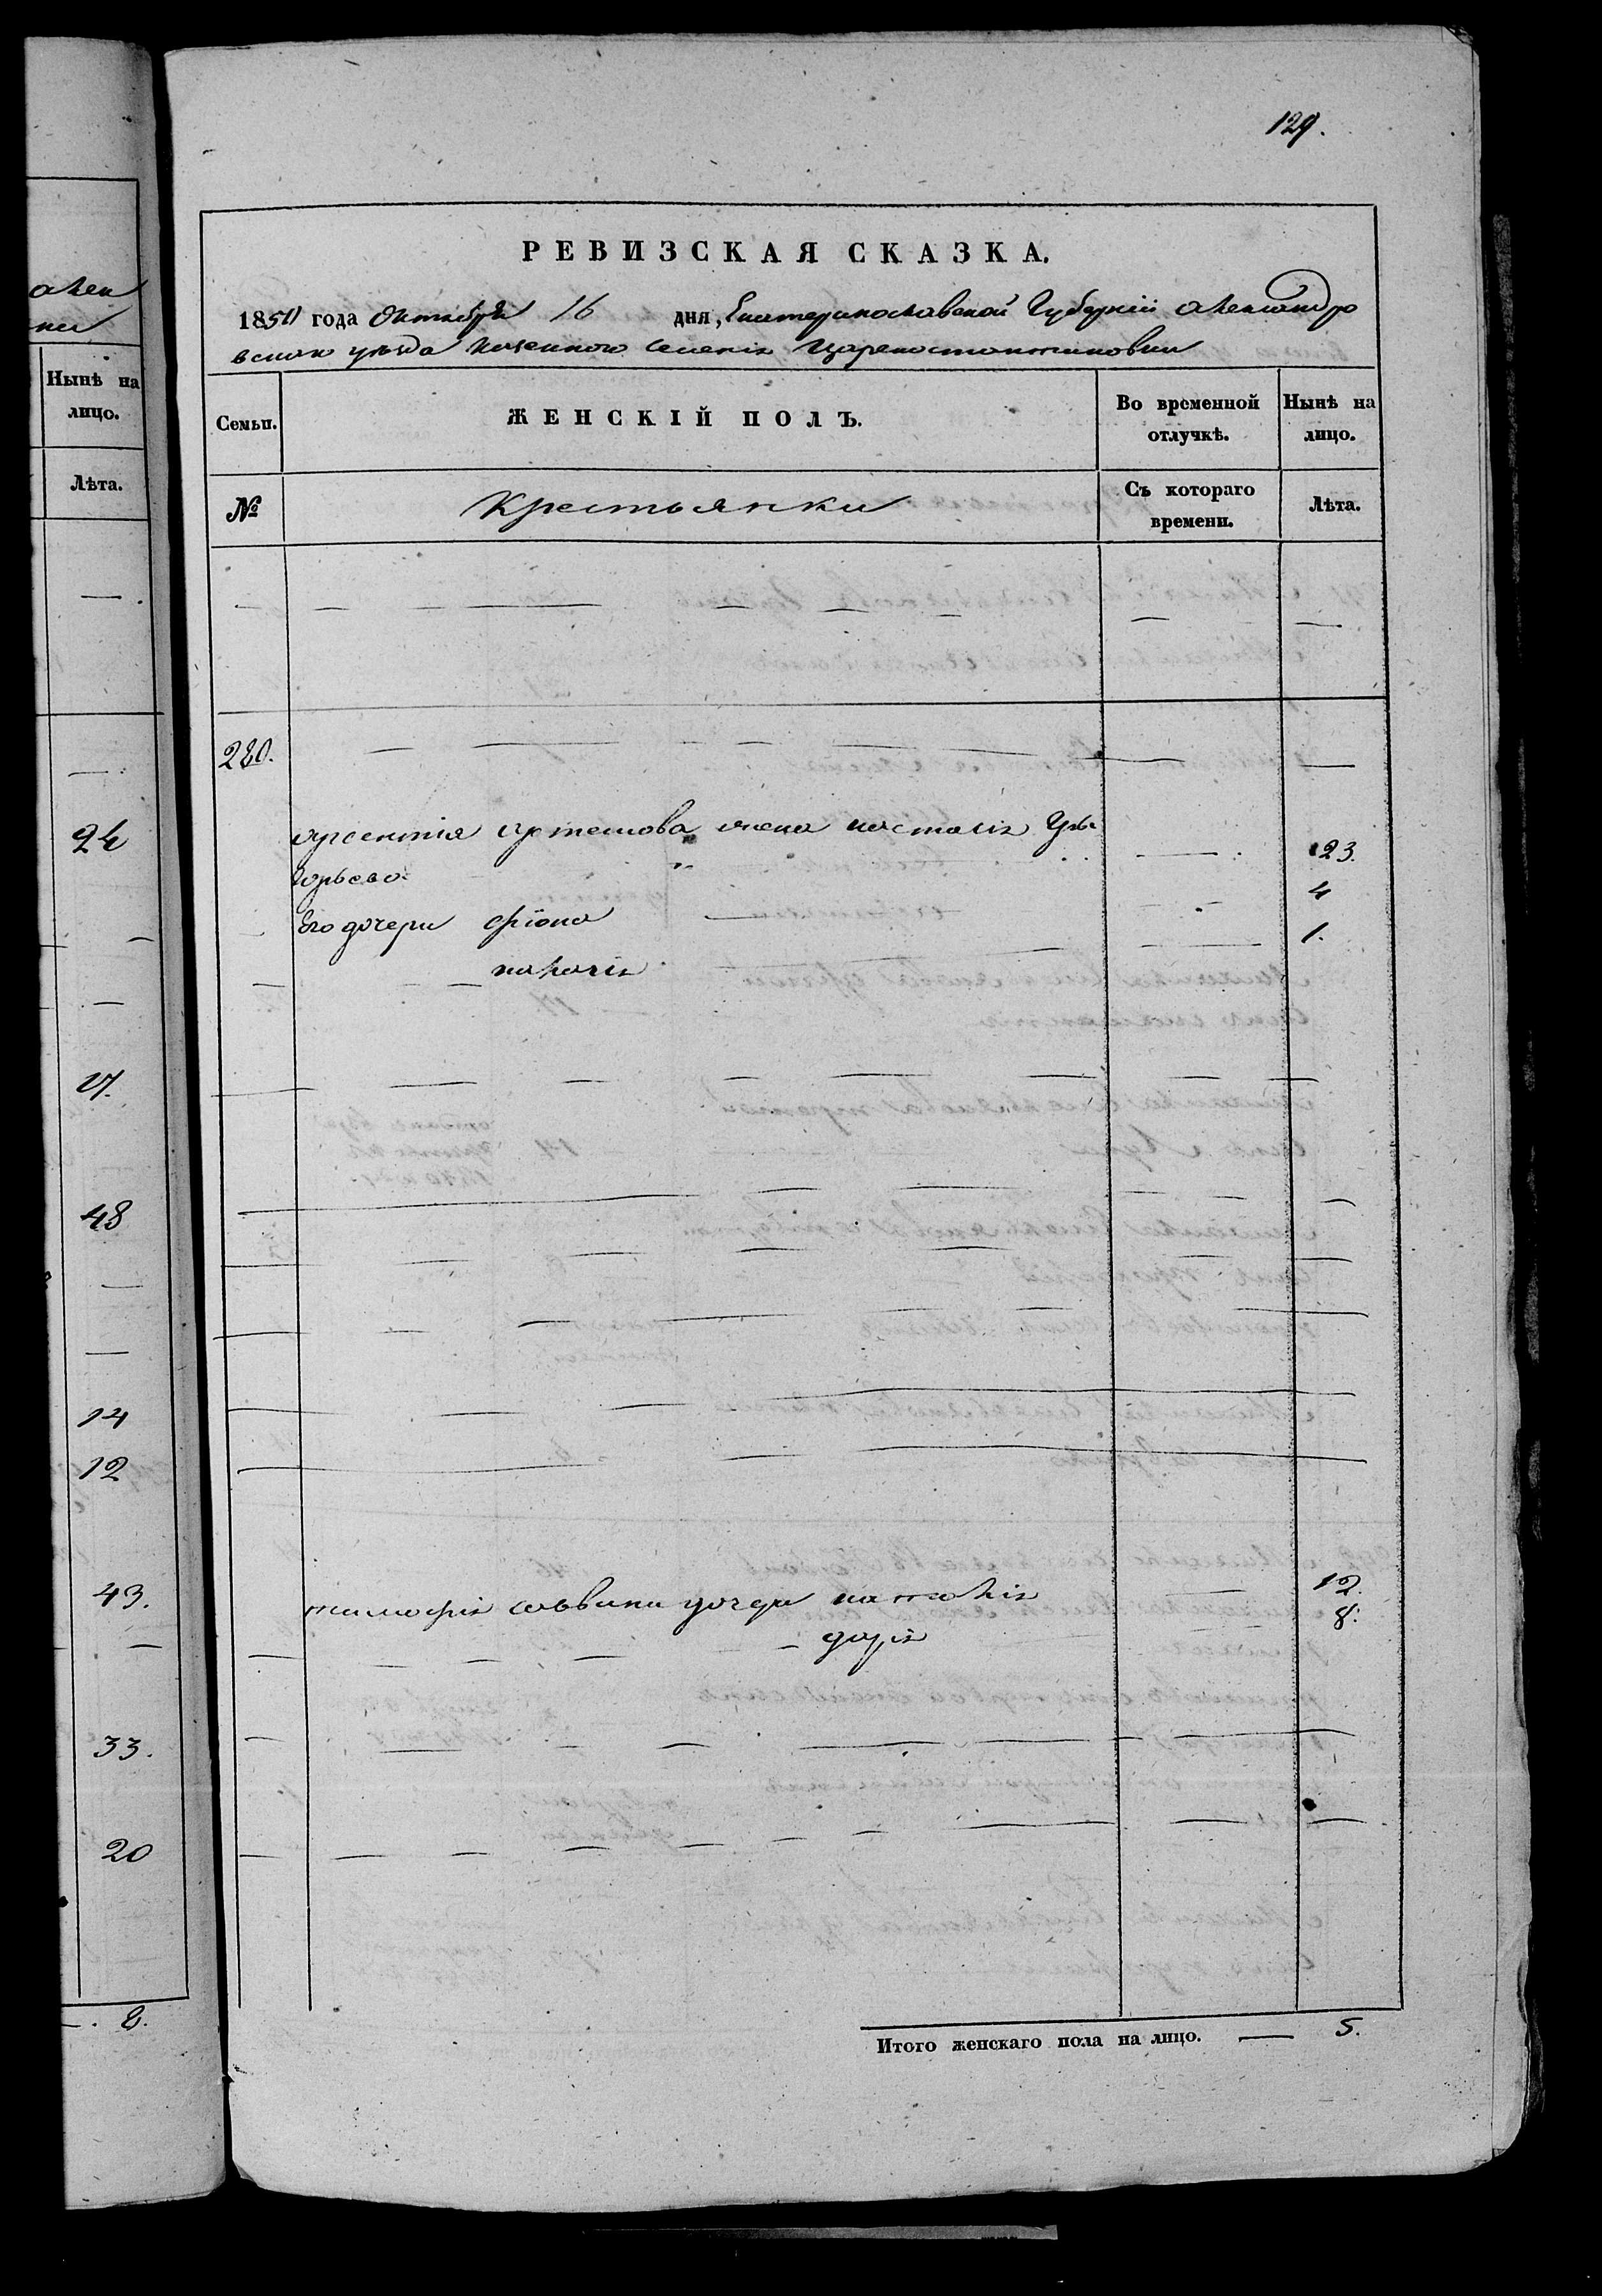 129.
РЕВИЗСКАЯ СКАЗКА.
1850 года Октября 16 дня, Екатеринославской Губерніи Александро
вскаго уезда казенного селенія Цареконстантиновки
Семьи.
ЖЕНСКІЙ ПОЛЪ.
Во временной отлучкѣ.
Нынѣ на лицо.
№
Крестьянки
Съ котораго времени.
Лѣта.
280.
Артемова жена настасія Гри
горьева 23.
Его дочери 4
1.
тимофія саввина дочери наталія 12.
дарія 8.
Итого женскаго пола на лицо. — 5.
алек
ки
Нынѣ на
лицо.
Лѣта.
24
17.
48
14
12
43.
33.
20
8.